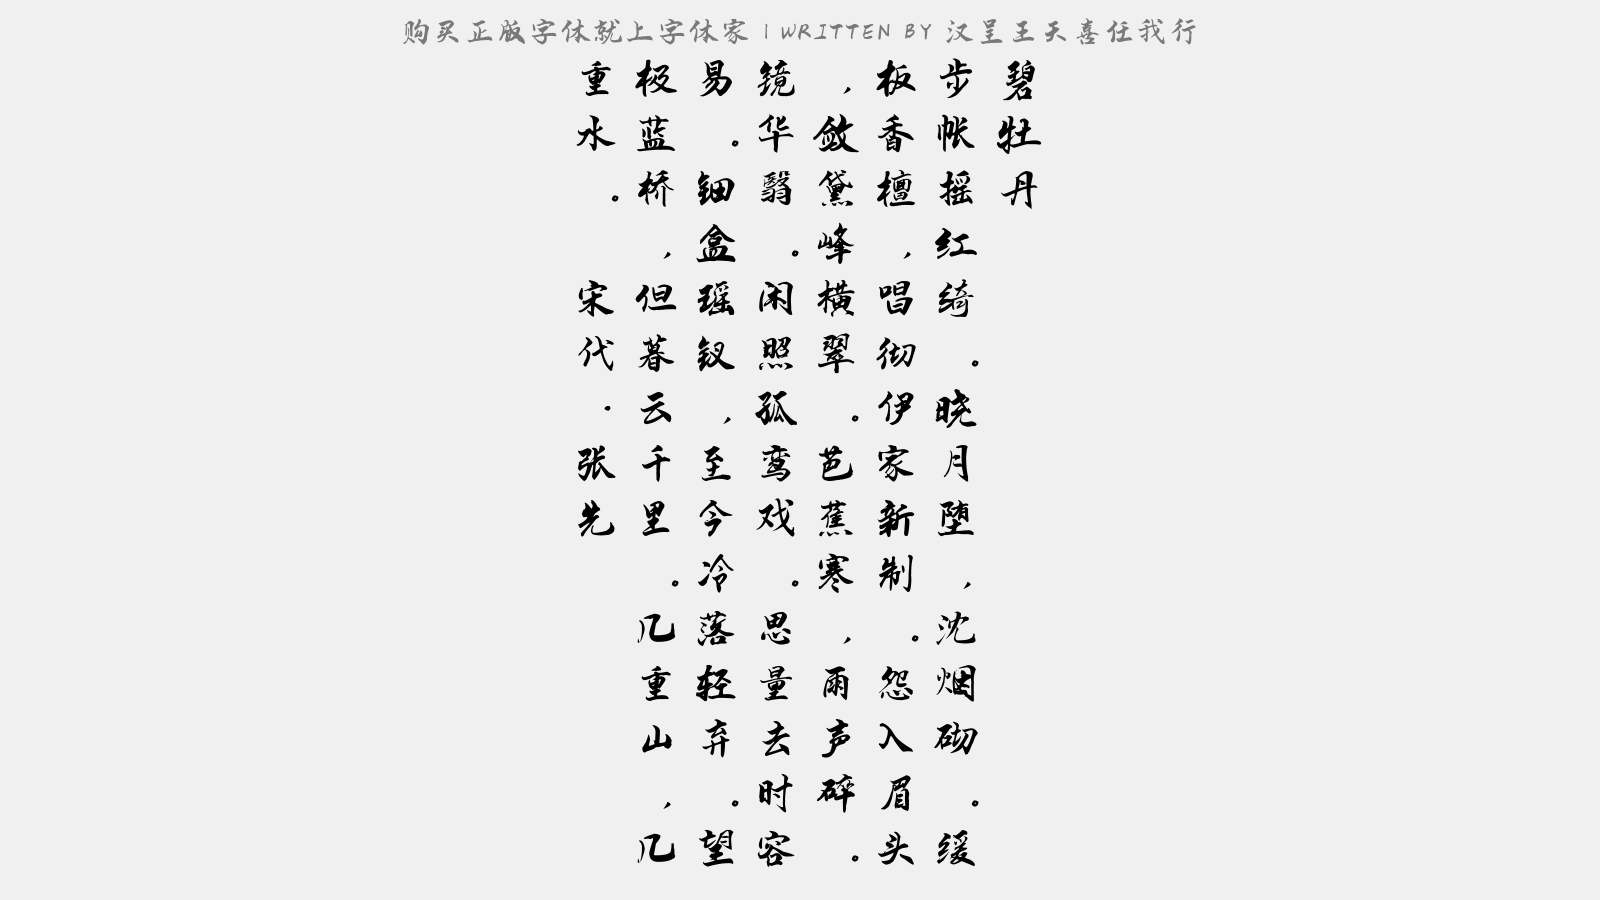 购买正版字体就上字体家 | WRITTEN BY 汉呈王天喜任我行
碧牡丹
步帐摇红绮。晓月堕，沈烟砌。缓
板香檀，唱彻伊家新制。怨入眉头。
，敛黛峰横翠。芭蕉寒，雨声碎。
镜华翳。闲照孤鸾戏。思量去时容
易。钿盒瑶钗，至今冷落轻弃。望
极蓝桥，但暮云千里。几重山，几
重水。宋代·张先